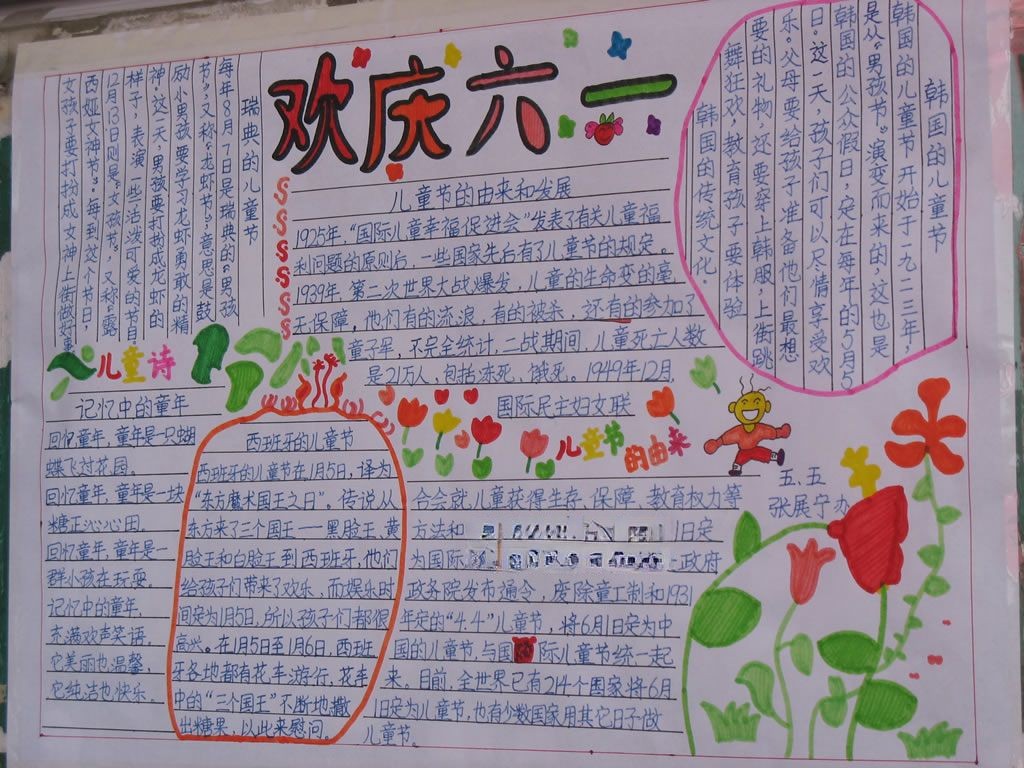 欢庆六一
儿童节的由来和发展
1925年，“国际儿童幸福促进会”发表了有关儿童福
利问题的原则后，一些国家先后有了儿童节的规定。
1939年，第二次世界大战爆发，儿童的生命变的毫
无保障。他们有的流浪，有的被杀，还有的参加了
童子军，不完全统计，二战期间，儿童死亡人数
是21万人，包括冻死、饿死。1949年12月，
国际民主妇女联
儿童节的由来
合会就儿童获得生存、保障、教育权力等
方法和
1日定
为国际
政府
政务院发布通令，废除童工制和1931
年定的“4.4”儿童节，将6月1日定为中
国的儿童节，与国
际儿童节统一起
来，目前，全世界已有214个国家将6月
1日定为儿童节，也有少数国家用其它日子做
儿童节。
瑞典的儿童节
每年8月7日是瑞典的“男孩
节”，又称“龙虾节”，意思是鼓
励小男孩要学习龙虾勇敢的精
神，这一天，男孩要打扮成龙虾的
样子，表演一些活泼可爱的节目。
12月13日则是“女孩节”，又称“露
西娅女神节”，每到这个节日，
女孩子要打扮成女神上街做好事
韩国的儿童节
韩国的儿童节开始于一九二三年，
是从“男孩节”演变而来的，这也是
韩国的公众假日，定在每年的5月5
日。这一天，孩子们可以尽情享受欢
乐，父母要给孩子准备他们最想
要的礼物，还要穿上韩服，上街跳
舞狂欢，教育孩子要体验
韩国的传统文化.
儿童诗
记忆中的童年
回忆童年，童年是一只蝴
蝶飞过花园。
回忆童年，童年是一块
糖正沁心田。
回忆童年，童年是一
群小孩在玩耍。
记忆中的童年，
充满欢声笑语，
它美丽也温馨，
它纯洁也快乐。
西班牙的儿童节
西班牙的儿童节在1月5日，译为
“东方魔术国王之日”。传说从
东方来了三个国王——黑脸王、黄
脸王和白脸王到西班牙，他们
给孩子们带来了欢乐，而娱乐时
间定为1月5日，所以孩子们都很
高兴。在1月5日至1月6日，西班
牙各地都有花车游行，花车
中的“三个国王”不断地撒
出糖果，以此来慰问。
五.五
张展宁办